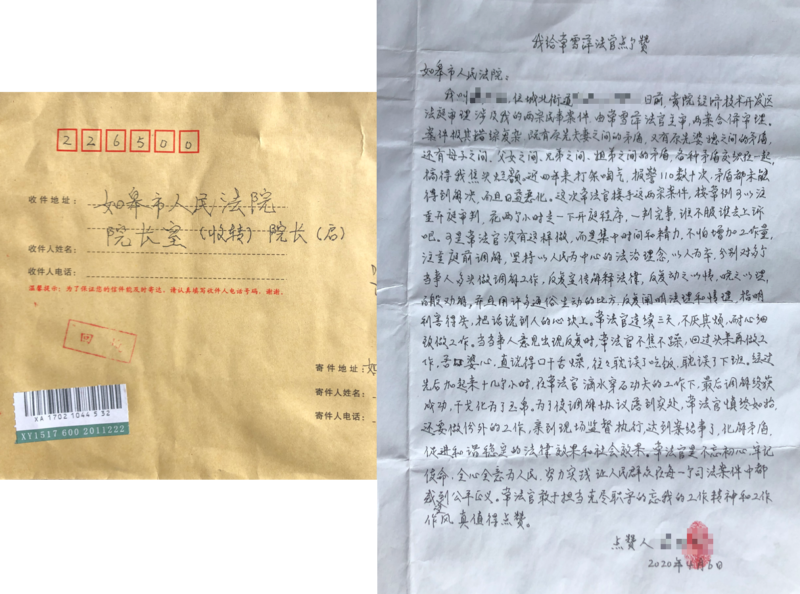 226500
收件地址：如皋市人民法院
院长室（收转）院长（启）
收件人姓名：
收件人电话：
温馨提示：为了保证您的信件能及时寄达，请认真填写收件人电话号码，谢谢。
寄件地址：如
寄件人姓名：
寄件人电话：
XA 1702 1044 5 32
XY1517 600 2011222
我给章雪萍法官点个赞
如皋市人民法院：
我叫 住城北街道 日前，贵院经济技术开发区
法庭审理涉及我的两宗民事案件，由章雪萍法官主审，两案合併审理。
案件极其错综复杂，既有原先夫妻之间的矛盾，又有原先婆媳之间的矛盾，
还有母子之间、父女之间、兄弟之间、姐弟之间的矛盾，各种矛盾交织在一起，
搞得我焦头烂额，近四年来打架呕气，报警110数十次，矛盾都未能
得到解决，而且日益恶化。这次章法官接手这两宗案件，按常例可以注
重开庭审判，花两个小时走一下开庭程序，一判完事，谁不服谁去上诉
吧。可是章法官没有这样做，而是集中时间和精力，不怕增加工作量，
注重庭前调解，坚持以人民为中心的法治理念，以人为本，分别对多个
当事人多头做调解工作，反复宣传解释法律，反复动之以情，晓之以理，
百般劝解，并且用许多通俗生动的比方，反复阐明法理和情理，指明
利害得失，把话说到人的心坎上。章法官连续三天，不厌其烦，耐心细
致做工作。当当事人意见出现反复时，章法官不焦不躁，回过头来再做工
作，苦口婆心，直说得口干舌燥，往往耽误了吃饭，耽误了下班。经过
先后加起来十几个小时，在章法官滴水穿石功夫的工作下，最后调解终获
成功，干戈化为了玉帛。为了使调解协议落到实处，章法官慎终如始，
还要做份外的工作，来到现场监督执行，达到案结事了，化解矛盾，
促进和谐稳定的法律效果和社会效果。章法官是不忘初心，牢记
使命，全心全意为人民，努力实践让人民群众在每一个司法案件中都
感到公平正义。章法官敢于担当克尽职守的忘我的工作精神和工作
作风，真值得点赞。
点赞人
2020年4月6日